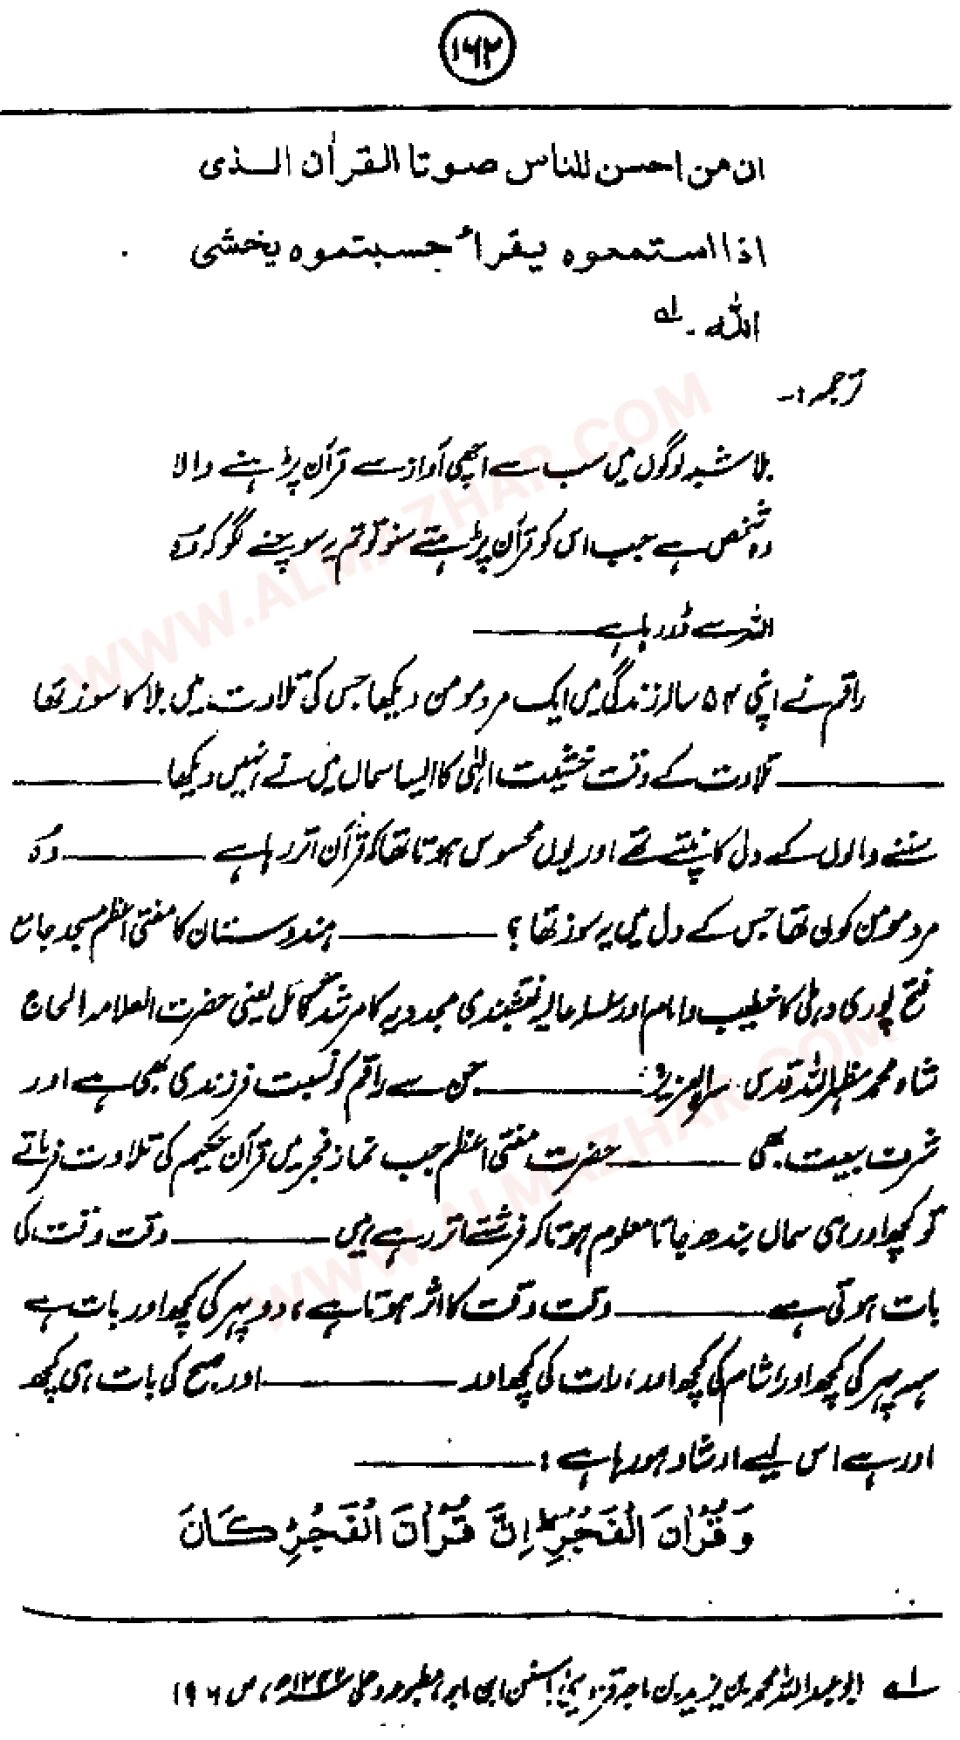 ۱۶۲
ان من احسن للناس صوتا القرأن الذی
اذا استمعوہ یقراء حسبتموہ یخشی
اللہ ۔ لہ
ترجمہ :۔
بلا شبہ لوگوں میں سب سے اچھی آواز سے قرآن پڑھنے والا
وہ شخص ہے جب اس کو قرآن پڑھتے سنو تو تم یہ سوچنے لگو کہ وہ
اللہ سے ڈر رہا ہے ———
راقم نے اپنی ۵۴ سالہ زندگی میں ایک مرد مومن دیکھا جس کی تلاوت میں بلا کا سوز تھا
——— تلاوت کے وقت خشیت الٰہی کا ایسا سماں میں نے نہیں دیکھا ———
سننے والوں کے دل کانپتے تھے اور یوں محسوس ہوتا تھا کہ قرآن اتر رہا ہے ——— وہ
مرد مومن کون تھا جس کے دل میں یہ سوز تھا ؟ ——— ہندوستان کا مفتی اعظم مسجد جامع
فتح پوری دہلی کا خطیب و امام اور سلسلہ عالیہ نقشبندی مجددیہ کا مرشد کامل یعنی حضرت العلامہ الحاج
شاہ محمد مظہر اللہ قدس سرہ العزیز ——— جن سے راقم کو نسبت فرزندی بھی ہے اور
شرف بیعت بھی ——— حضرت مفتی اعظم جب نماز فجر میں قرآن حکیم کی تلاوت فرماتے
تو کچھ اور ہی سماں بندھ جاتا معلوم ہوتا کہ فرشتے اتر رہے ہیں ——— وقت وقت کی
بات ہوتی ہے ——— وقت وقت کا اثر ہوتا ہے ، دوپہر کی کچھ اور بات ہے
سہ پہر کی کچھ اور ، شام کی کچھ اور ، رات کی کچھ اور ——— اور صبح کی بات ہی کچھ
اور ہے اس لیے ارشاد ہو رہا ہے : ———
وَ قُرْاٰنَ الْفَجْرِؕ اِنَّ قُرْاٰنَ الْفَجْرِ كَانَ
لہ ابو عبد اللہ محمد بن یزید بن ماجہ قزوینی : سنن ابن ماجہ ، مطبوعہ دہلی ، ص ۱۹۶
WWW.ALMAZHAR.COM
WWW.ALMAZHAR.COM